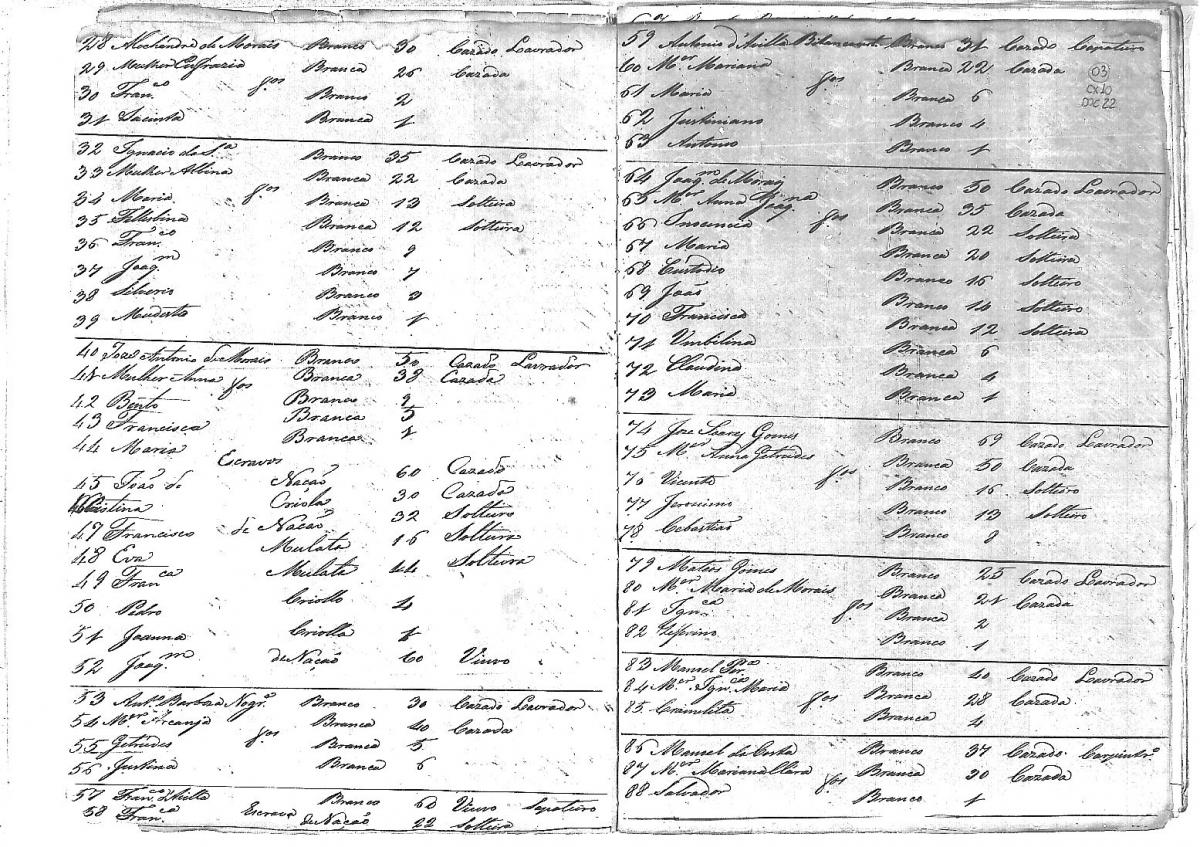 28 Alexandre de Morais Branco 30 Cazado Lavrador
29 Mulher Eufrazia Branca 26 Cazada
30 Fran.co fos Branco 2
31 Jacinta Branca 1
32 Ignacio da S.a Branco 35 Cazado Lavrador
33 Mulher Albina Branca 22 Cazada
34 Maria fos Branca 13 Solteira
35 Branca 12 Solteira
36 Fran.co Branco 9
37 Joaq.m Branco 7
38 Silverio Branco 3
39 Modesto Branco 1
40 Joze Antonio de Morais Branco 50 Cazado Lavrador
41 Mulher Anna Branca 38 Cazada
42 Bento fos Branco 9
43 Francisca Branca 5
44 Maria Branca 1
Escravos
45 João de Nação 60 Cazado
Cristina Criola 30 Cazada
47 Francisco de Nação 32 Solteiro
48 Eva Mulata 16 Solteira
49 Fran.ca Mulata 44 Solteira
50 Pedro Criollo 4
51 Joanna Criolla 1
52 Joaq.m de Nação 60 Viuvo
53 Ant.o Barboza Nogr.a Branco 30 Cazado Lavrador
54 M.er Arcanja Branca 40 Cazada
55 Getrudes fos Branca 5
56 Justina Branca 6
57 Fran.co Branco 60 Viuvo Sapateiro
58 Fran.ca Escrava de Nação 22 Solteira
59 Antonio d'Avilla Bitancourt Branco 31 Cazado Çapateiro
60 M.er Mariana Branca 22 Cazada
61 Maria fos Branca 6
62 Justiniano Branco 4
63 Antonio Branco 1
03
CX 10
DOC 22
64 Joaq.m de Morais Branco 50 Cazado Lavrador
65 M.er Anna Joaq.na Branca 35 Cazada
66 Inocencia fos Branca 22 Solteira
67 Maria Branca 20 Solteira
68 Custodio Branco 16 Solteiro
69 João Branco 14 Solteiro
70 Francisca Branca 12 Solteira
71 Umbilina Branca 6
72 Claudina Branca 4
73 Maria Branca 1
74 Joze Soares Gomes Branco 69 Cazado Lavrador
75 M.er Anna Getrudes Branca 50 Cazada
76 Vicente fos Branco 16 Solteiro
77 Jeronimo Branco 13 Solteiro
78 Cebastião Branco 9
79 Mateos Gomes Branco 25 Cazado Lavrador
80 M.er Maria de Morais Branca 21 Cazada
81 Ign.ca fos Branca 2
82 Zeferino Branco 1
83 Manoel Pr.a Branco 40 Cazado Lavrador
84 M.er Ign.cia Maria Branca 28 Cazada
85 fos Branca 4
86 Manoel da Costa Branco 37 Cazado Carpintr.o
87 M.er Mariana Clara Branca 30 Cazada
88 Salvador fos Branco 1